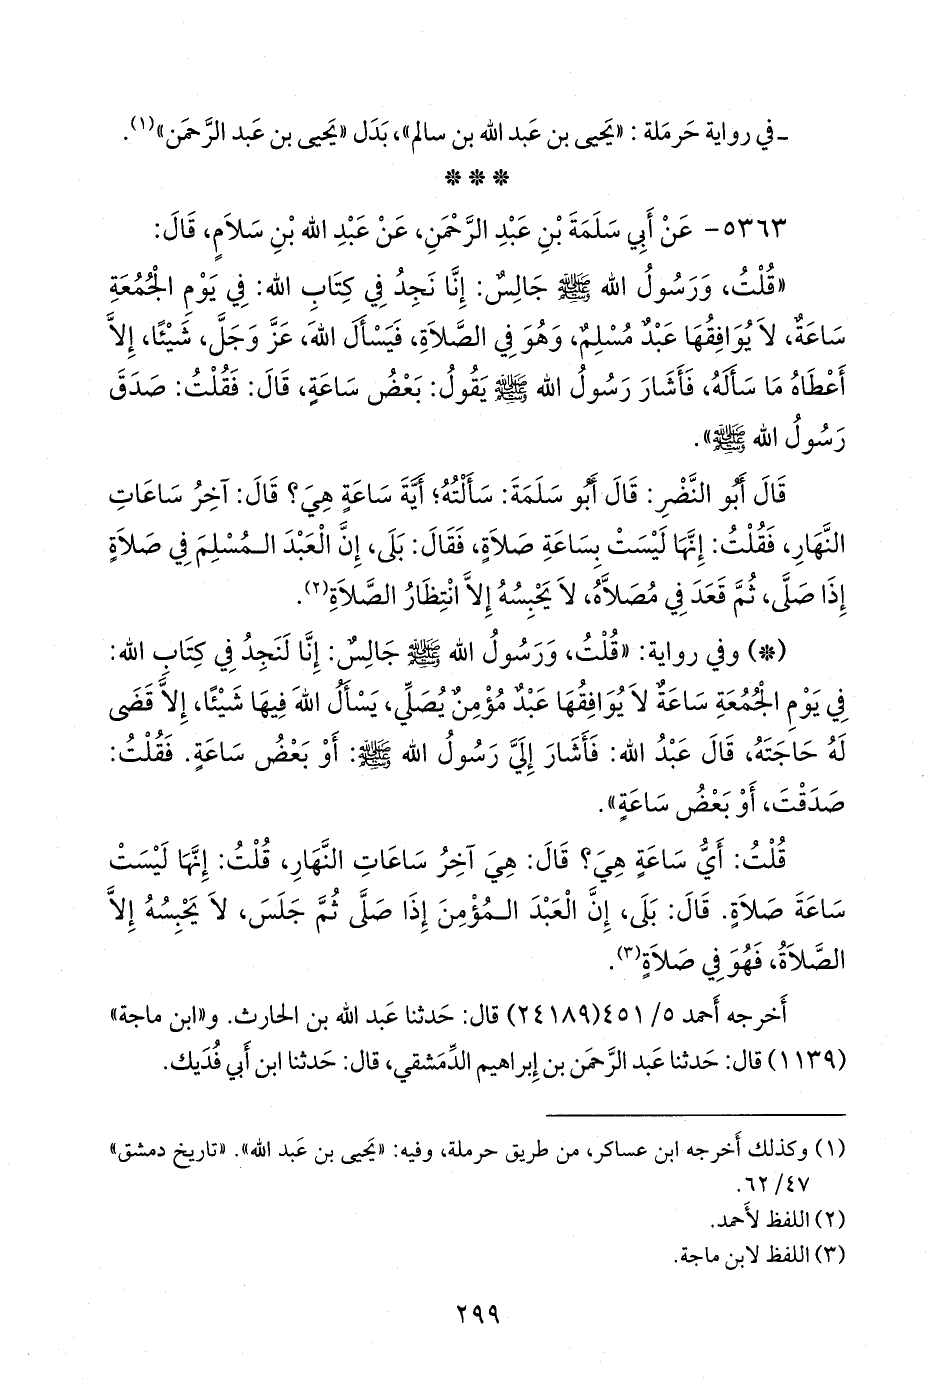 ـ في رواية حَرمَلة : «يَحيى بن عَبد الله بن سالم»، بَدَل «يَحيى بن عَبد الرَّحمَن»(١).
* * *
٥٣٦٣- عَنْ أَبِي سَلَمَةَ بْنِ عَبْدِ الرَّحْمَنِ، عَنْ عَبْدِ الله بْنِ سَلاَمٍ، قَالَ:
«قُلْتُ، وَرَسُولُ الله ﷺ جَالِسٌ: إِنَّا نَجِدُ فِي كِتَابِ الله: فِي يَوْمِ الْجُمُعَةِ
سَاعَةٌ، لاَ يُوَافِقُهَا عَبْدٌ مُسْلِمٌ، وَهُوَ فِي الصَّلاَةِ، فَيَسْأَلَ اللهَ، عَزَّ وَجَلَّ، شَيْئًا، إِلاَّ
أَعْطَاهُ مَا سَأَلَهُ، فَأَشَارَ رَسُولُ الله ﷺ يَقُولُ: بَعْضُ سَاعَةٍ، قَالَ: فَقُلْتُ: صَدَقَ
رَسُولُ الله ﷺ».
قَالَ أَبُو النَّضْرِ: قَالَ أَبُو سَلَمَةَ: سَأَلْتُهُ؛ أَيَّةَ سَاعَةٍ هِيَ؟ قَالَ: آخِرُ سَاعَاتِ
النَّهَارِ، فَقُلْتُ: إِنَّهَا لَيْسَتْ بِسَاعَةِ صَلاَةٍ، فَقَالَ: بَلَى، إِنَّ الْعَبْدَ الـمُسْلِمَ فِي صَلاَةٍ
إِذَا صَلَّى، ثُمَّ قَعَدَ فِي مُصَلاَّهُ، لاَ يَحْبِسُهُ إِلاَّ انْتِظَارُ الصَّلاَةِ(٢).
(*) وفي رواية: «قُلْتُ، وَرَسُولُ الله ﷺ جَالِسٌ: إِنَّا لَنَجِدُ فِي كِتَابِ الله:
فِي يَوْمِ الْجُمُعَةِ سَاعَةٌ لاَ يُوَافِقُهَا عَبْدٌ مُؤْمِنٌ يُصَلِّي، يَسْأَلُ اللهَ فِيهَا شَيْئًا، إِلاَّ قَضَى
لَهُ حَاجَتَهُ، قَالَ عَبْدُ الله: فَأَشَارَ إِلَيَّ رَسُولُ الله ﷺ: أَوْ بَعْضُ سَاعَةٍ. فَقُلْتُ:
صَدَقْتَ، أَوْ بَعْضُ سَاعَةٍ».
قُلْتُ: أَيُّ سَاعَةٍ هِيَ؟ قَالَ: هِيَ آخِرُ سَاعَاتِ النَّهَارِ، قُلْتُ: إِنَّهَا لَيْسَتْ
سَاعَةَ صَلاَةٍ. قَالَ: بَلَى، إِنَّ الْعَبْدَ الـمُؤْمِنَ إِذَا صَلَّى ثُمَّ جَلَسَ، لاَ يَحْبِسُهُ إِلاَّ
الصَّلاَةُ، فَهُوَ فِي صَلاَةٍ(٣).
أَخرجه أَحمد ٥/ ٤٥١(٢٤١٨٩) قال: حَدثنا عَبد الله بن الحارث. و«ابن ماجة»
(١١٣٩) قال: حَدثنا عَبد الرَّحمَن بن إِبراهيم الدِّمَشقي، قال: حَدثنا ابن أَبي فُدَيك.
(١) وكذلك أَخرجه ابن عساكر، من طريق حرملة، وفيه: «يَحيى بن عَبد الله». «تاريخ دمشق»
٤٧/ ٦٢.
(٢) اللفظ لأَحمد.
(٣) اللفظ لابن ماجة.
٢٩٩